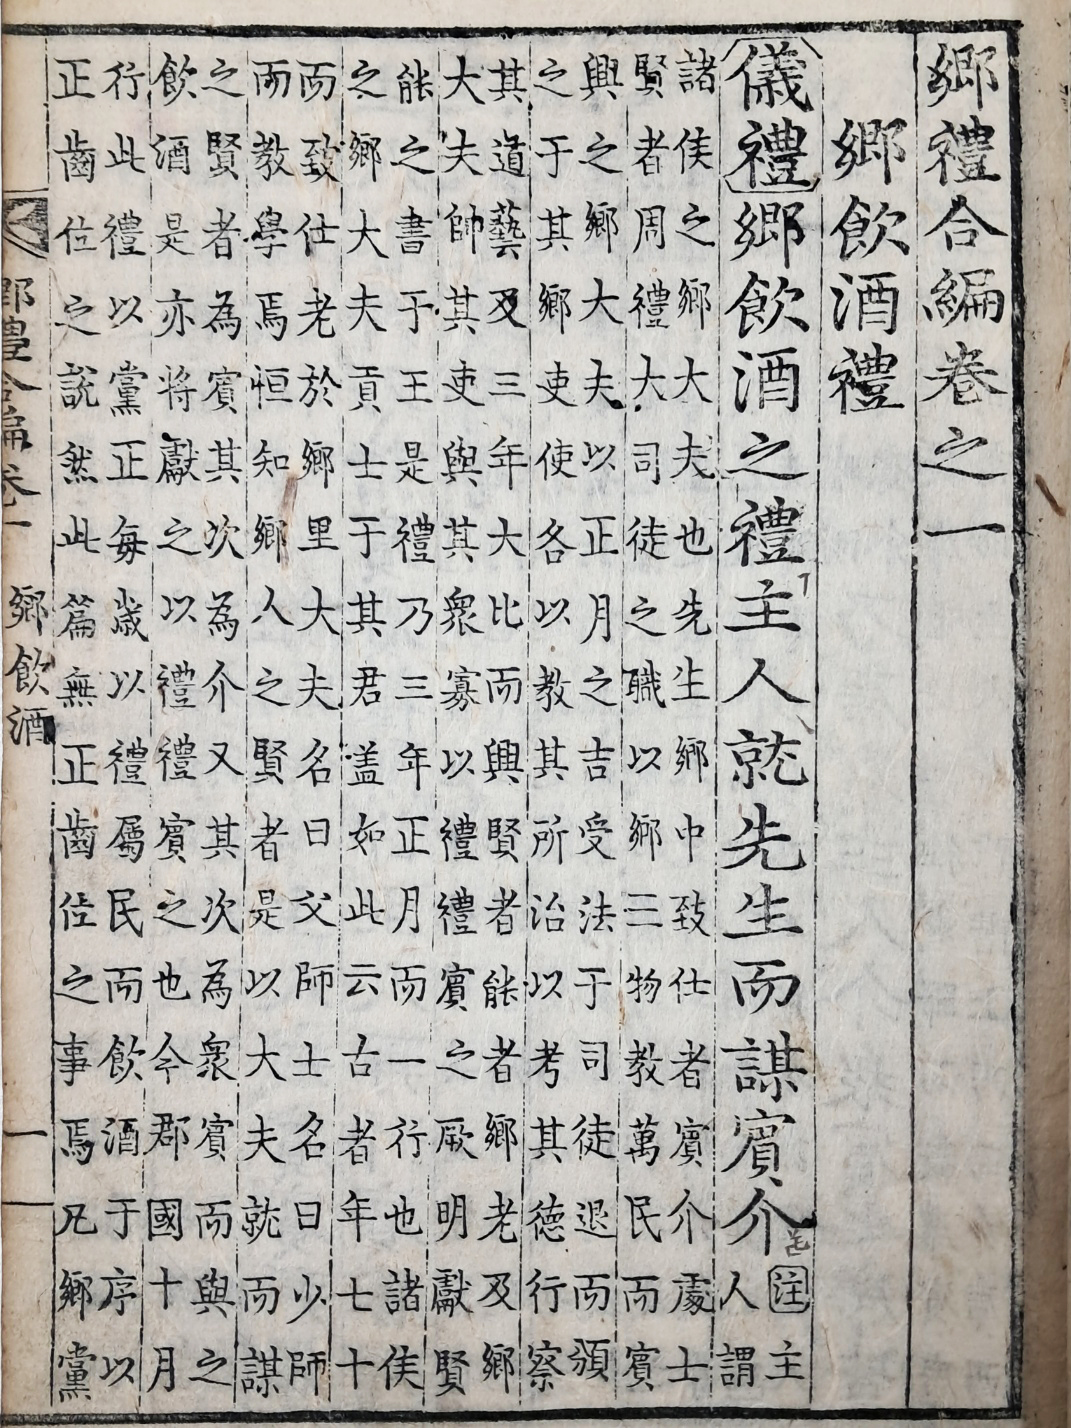 鄉禮合編卷之一
鄉飲酒禮
儀禮鄉飲酒之禮主人就先生而謀賓介
注主
人謂
諸侯之鄉大夫也先生鄉中致仕者賓介處士
賢者周禮大司徒之職以鄉三物教萬民而賓
興之鄉大夫以正月之吉受法于司徒退而頒
之于其鄉吏使各以教其所治以考其德行察
其道藝及三年大比而興賢者能者鄉老及鄉
大夫帥其吏與其衆寡以禮禮賓之厥明獻賢
能之書于王是禮乃三年正月而一行也諸侯
之鄉大夫貢士于其君盖如此云古者年七十
而致仕老於鄉里大夫名曰父師士名曰少師
而教學焉恒知鄉人之賢者是以大夫就而謀
之賢者為賓其次為介又其次為衆賓而與之
飲酒是亦將獻之以禮禮賓之也今郡國十月
行此禮以黨正每歲以禮屬民而飲酒于序以
正齒位之說然此篇無正齒位之事焉凡鄉黨
鄉禮合編卷一 鄉飲酒 一